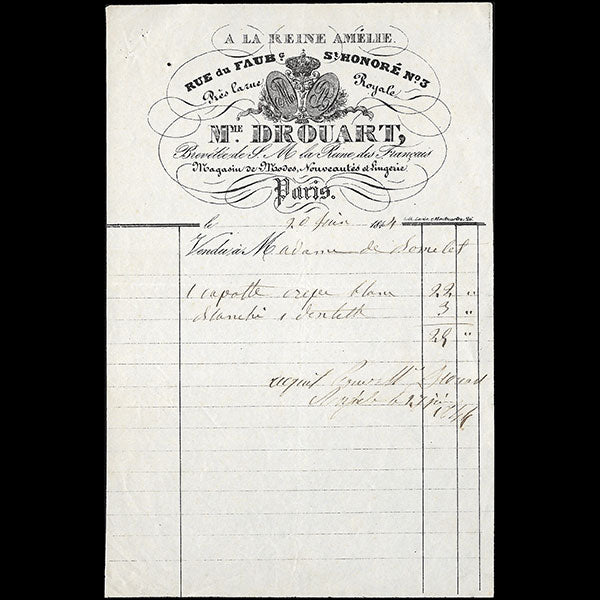 A LA REINE AMÉLIE.
RUE du FAUBG. ST. HONORÉ No. 3
Près la rue Royale
MME. DROUART,
Brevetée de S. M. la Reine des Français
Magasin de Modes, Nouveautés et Lingerie
Paris.
le 20 juin 1844
Vendu à Madame de
1 capotte crepe blanc 22 "
Blanchi 1 dentelle 3 "
25 "
acquit Pour Mme Drouart
le 27 juin
1844